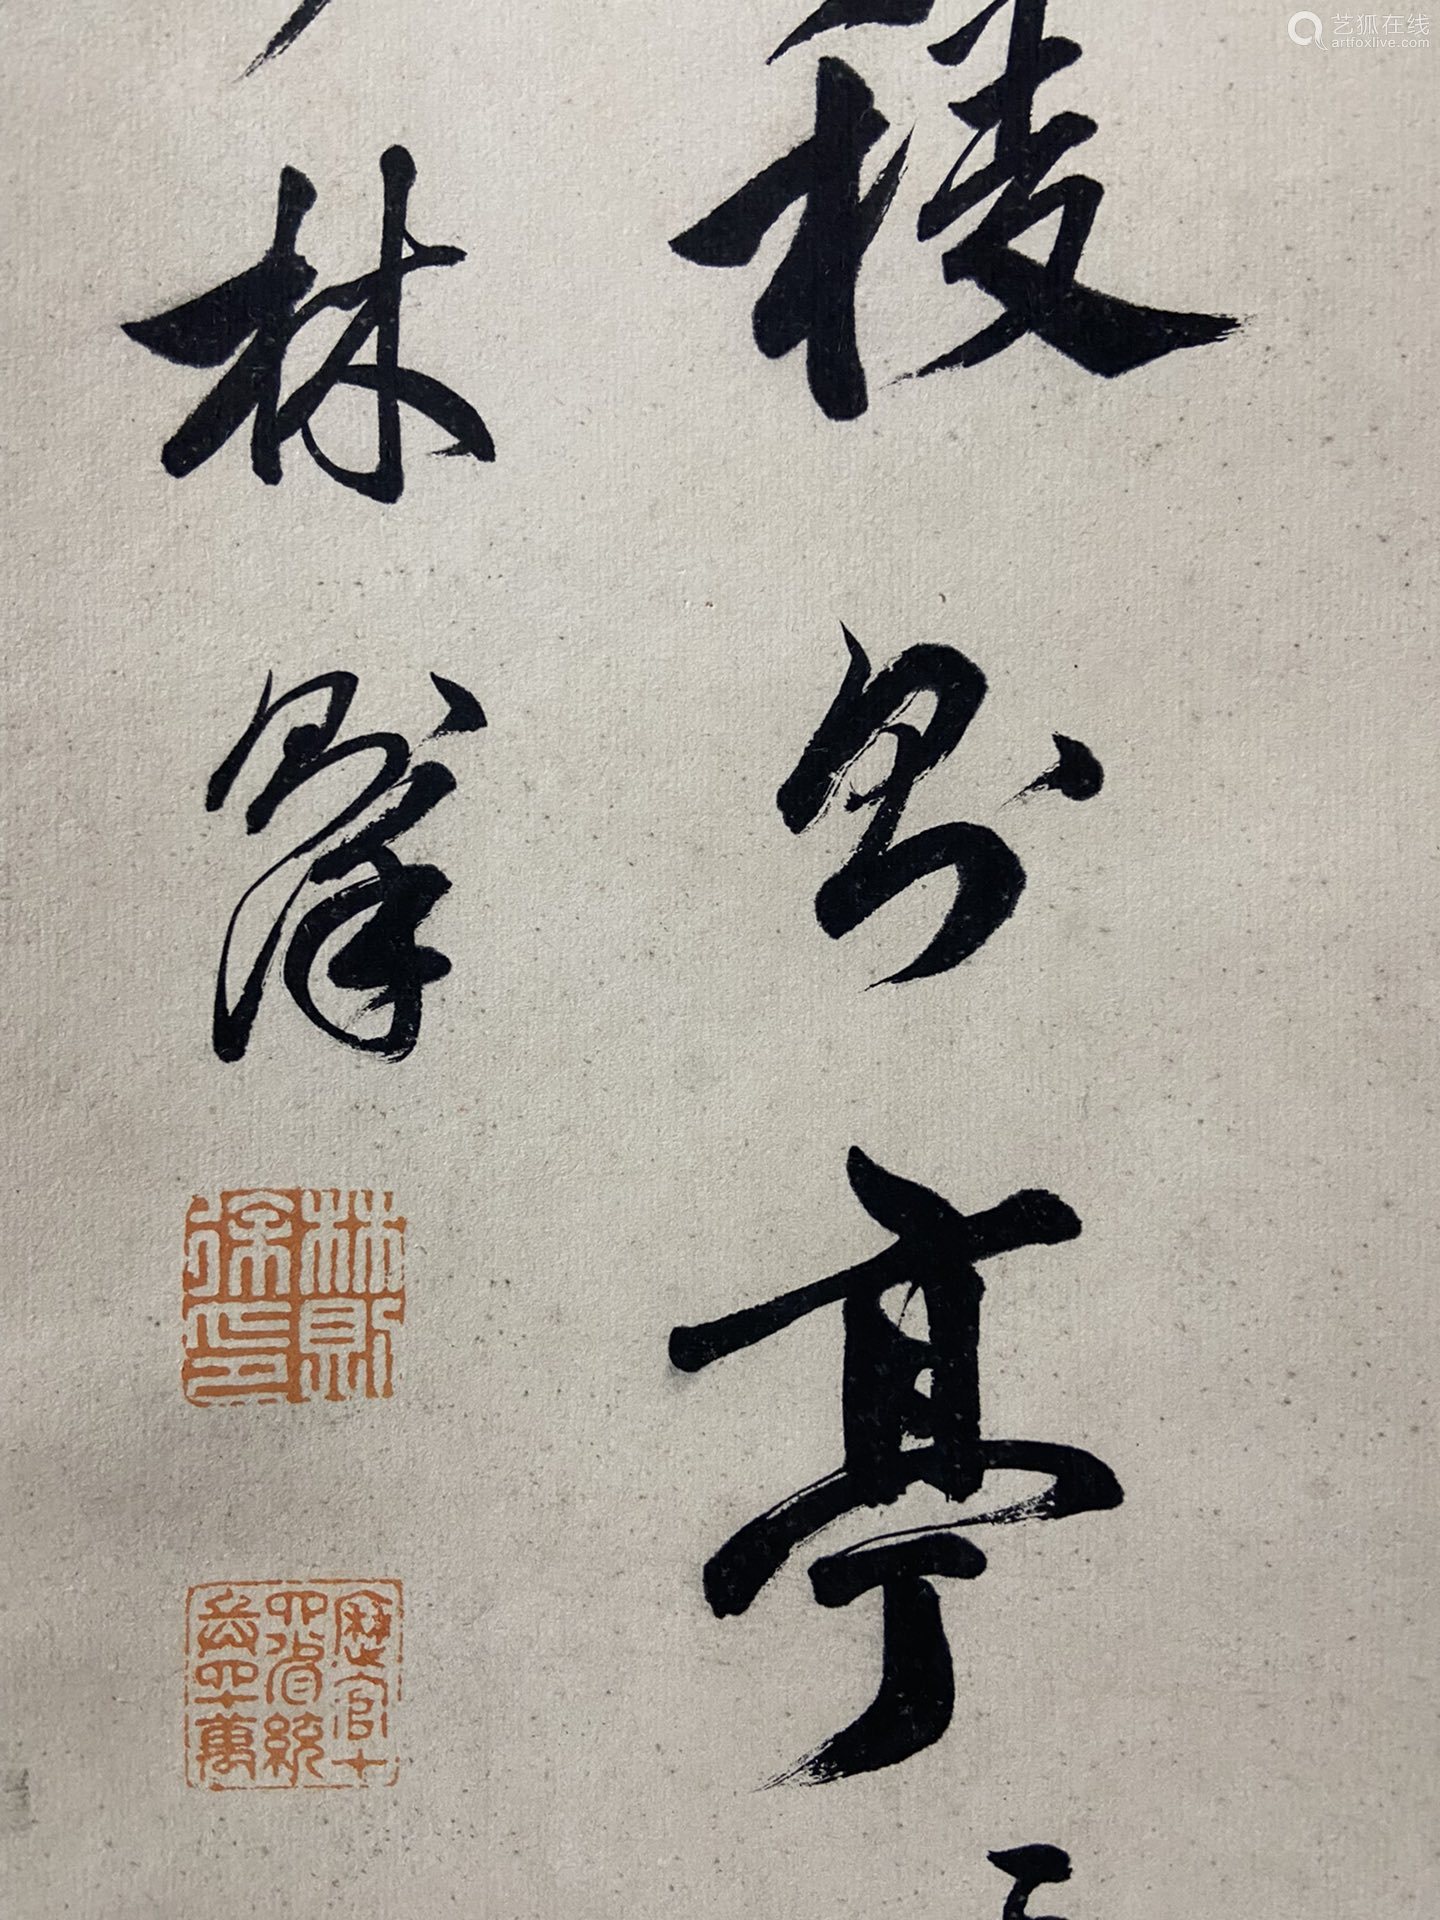 棱別亭
林則徐
林則徐印
歷官十
四省統
兵四十萬
艺狐在线
artfoxlive.com